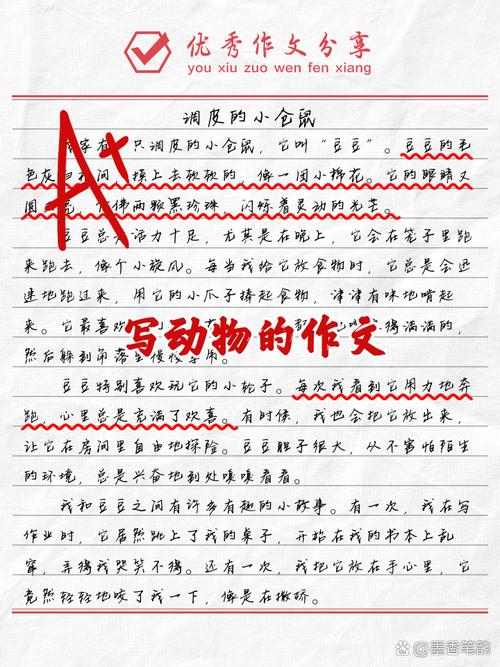 优秀作文分享
you xiu zuo wen fen xiang
调皮的小仓鼠
A+
家有 只调皮的小仓鼠，它叫“豆豆”。豆豆的毛
色灰白相间，摸上去软软的，像一团小棉花。它的眼睛又
圆 亮，仿佛两颗黑珍珠，闪烁着灵动的光芒。
豆豆总是活力十足，尤其是在晚上，它会在笼子里跑
来跑去，像个小旋风。每当我给它放食物时，它总是会迅
速地跑过来，用它的小爪子捧起食物，津津有味地啃起
来。它最喜欢 得满满的，
写动物的作文
然后躲到角落里慢慢享用。
豆豆特别喜欢玩它的小轮子。每次我看到它用力地奔
跑，心里总是充满了欢喜。有时候，我也会把它放出来，
让它在房间里自由地探险。豆豆胆子很大，从不害怕陌生
的环境，总是兴奋地到处嗅嗅看看。
我和豆豆之间有许多有趣的小故事。有一次，我在写
作业时，它居然跳上了我的桌子，开始在我的书本上乱
窜，弄得我哭笑不得。还有一次，我把它放在手心里，它
竟然轻轻地咬了我一下，像是在撒娇。
墨香笔韵